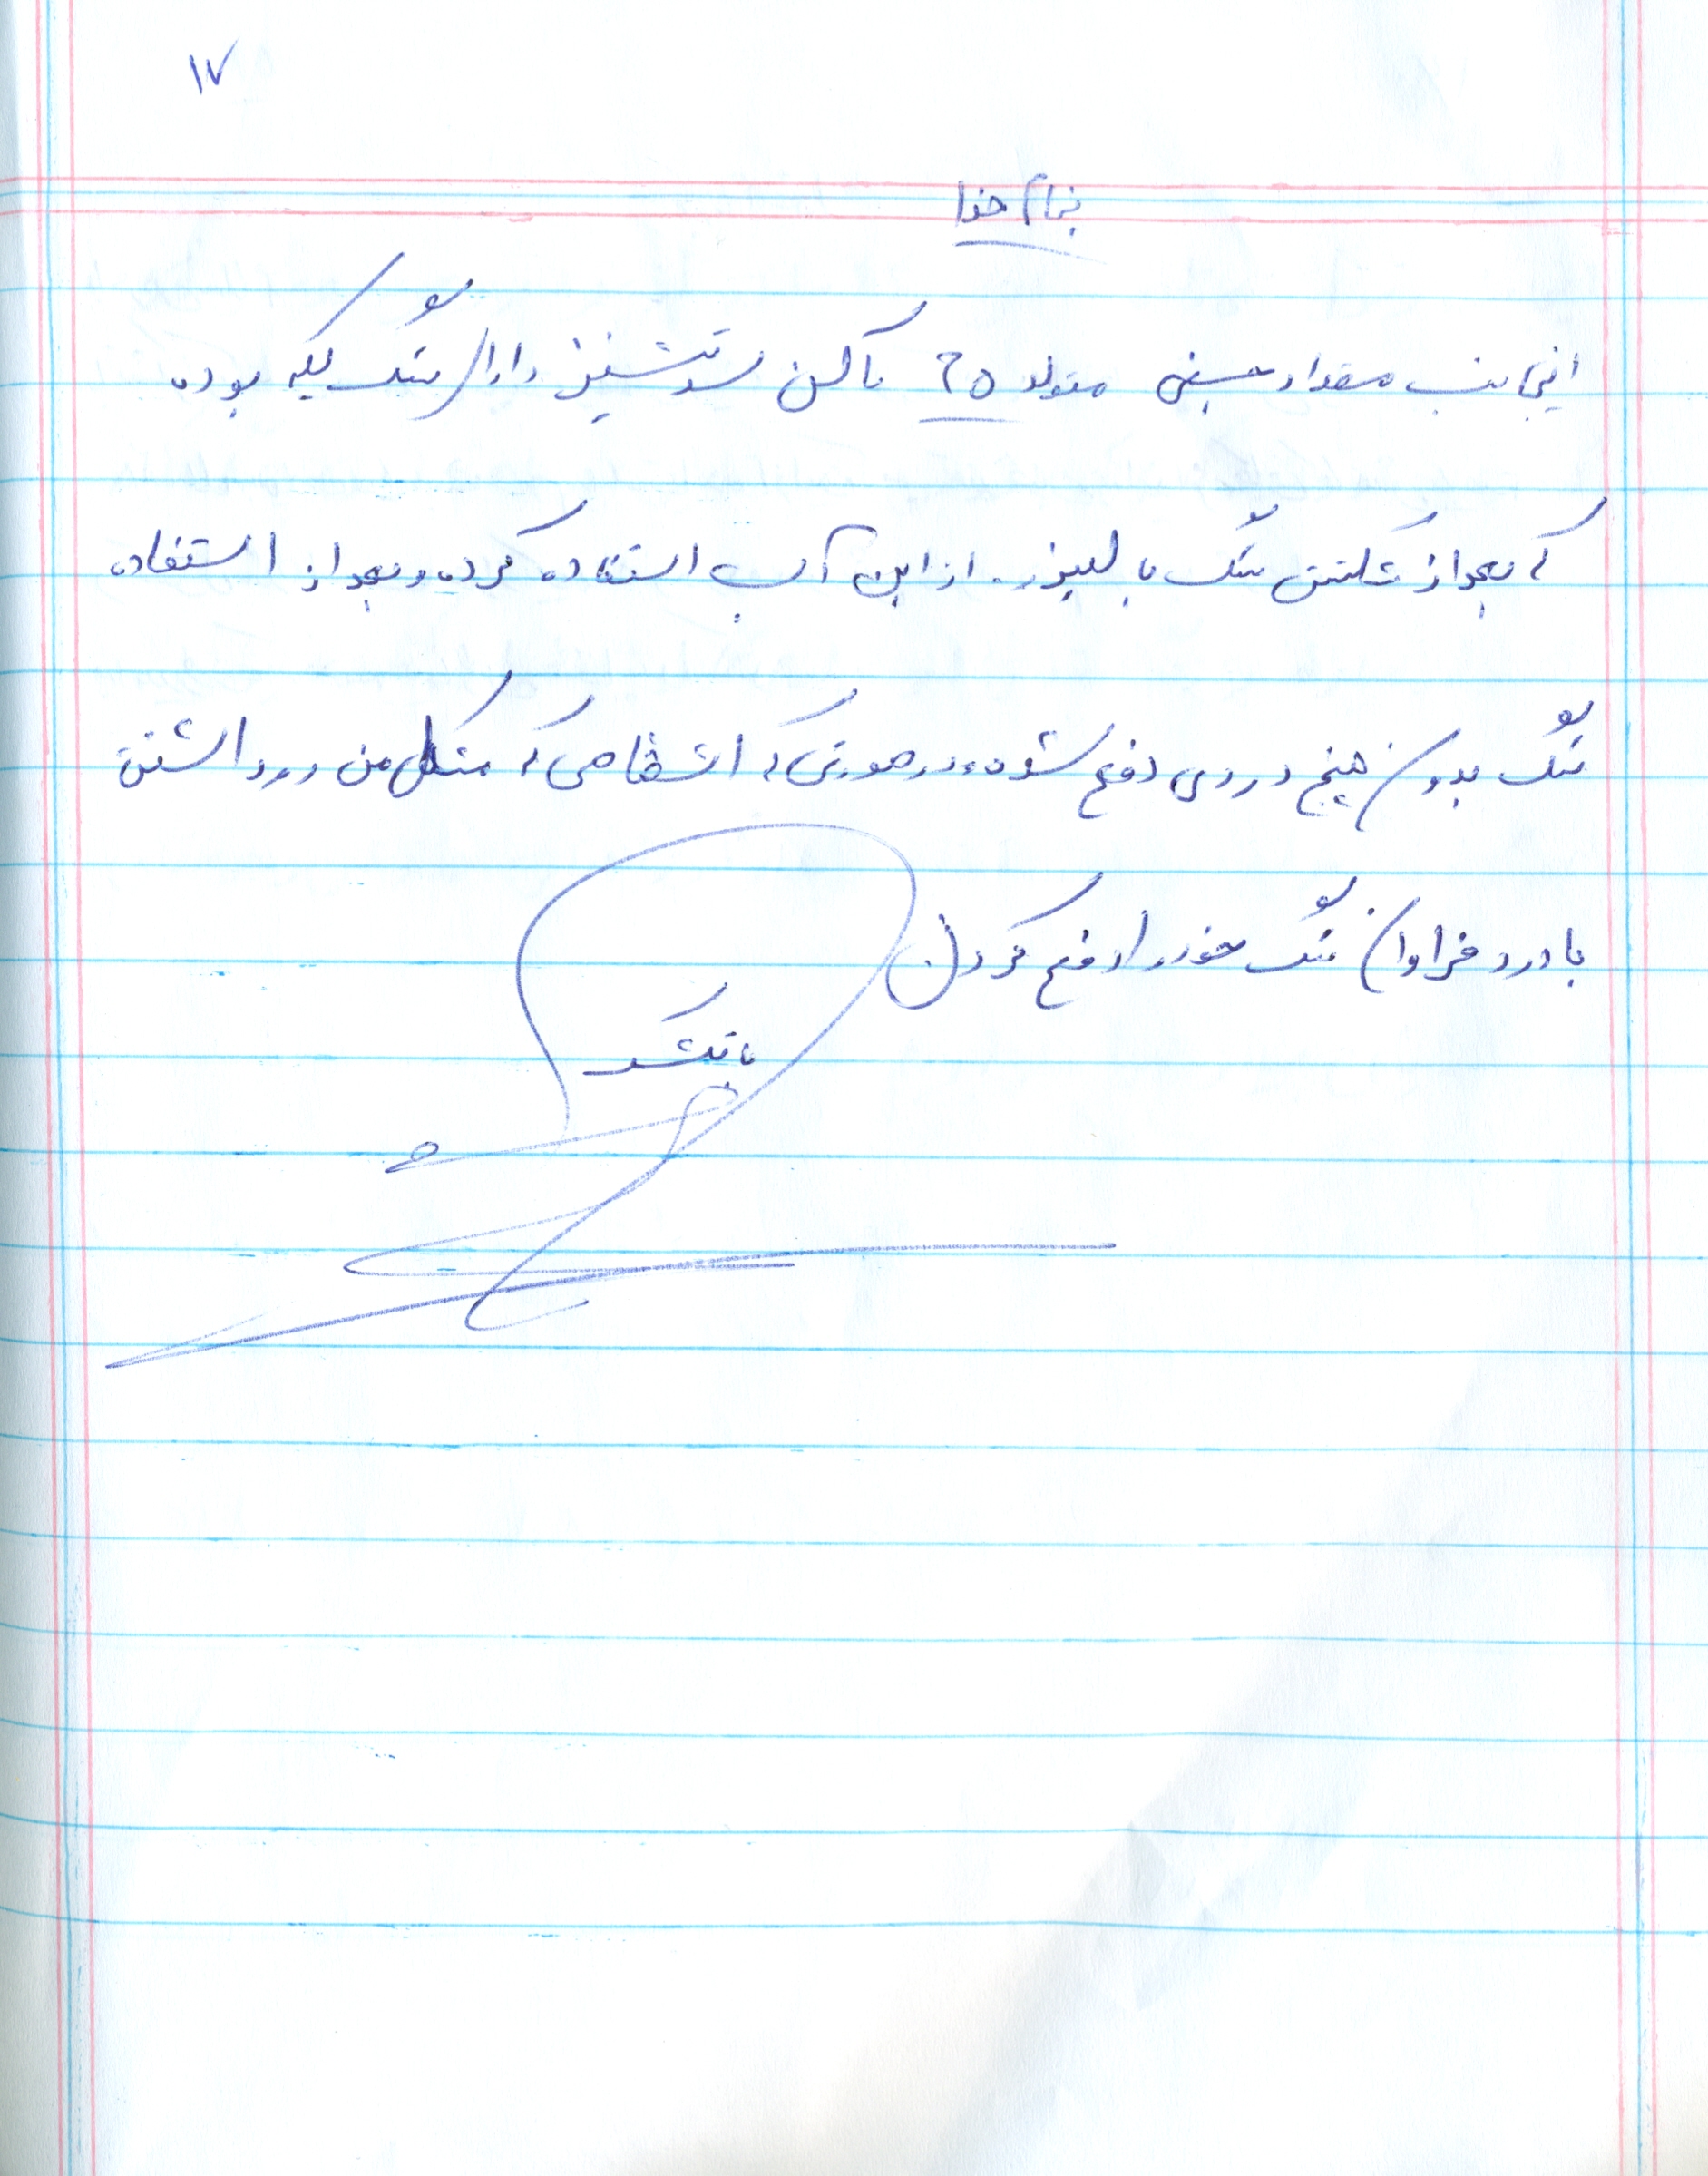 ۱۷
بنام خدا
اینجانب مقداد حسینی متولد ۶۵ ساکن دارای سنگ کلیه بوده
که بعد از شکستن سنگ با لیزر از این آب استفاده کرده و بعد از استفاده
سنگ بدون هیچ دردی دفع شده در صورتی که اشخاصی که مشکل من رو داشتن
با درد فراوان سنگ خود را دفع کردن
باتشکر